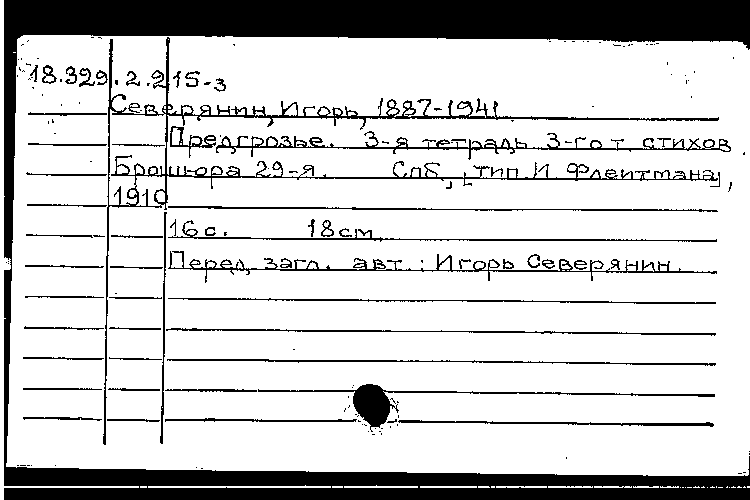 18.329.2.215-3
Северянин, Игорь, 1887-1941
Предгрозье. 3-я тетрадь 3-го т. стихов.
Брошюра 29-я. Спб., [тип. И. Флейтмана],
1910
16 с. 18 см.
Перед загл. авт.: Игорь Северянин.